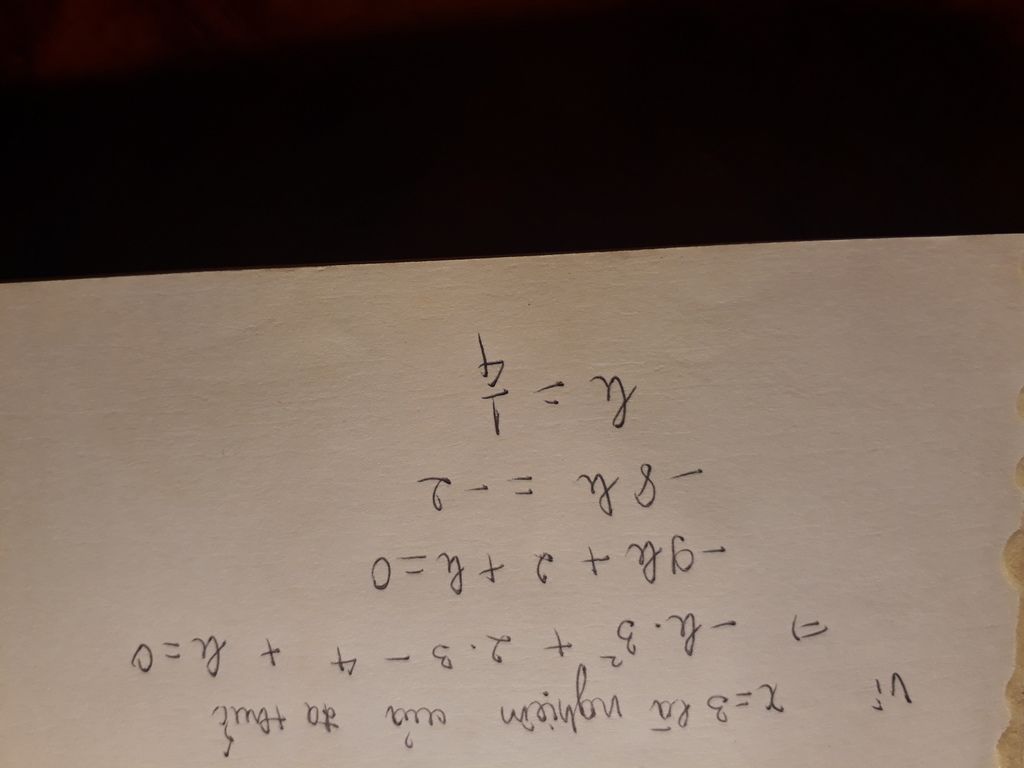 Vì x=3 là nghiệm của đa thức
=) -k.3² + 2.3 - 4 + k=0
-9k + 2 + k=0
-8k = -2
k = 1/4